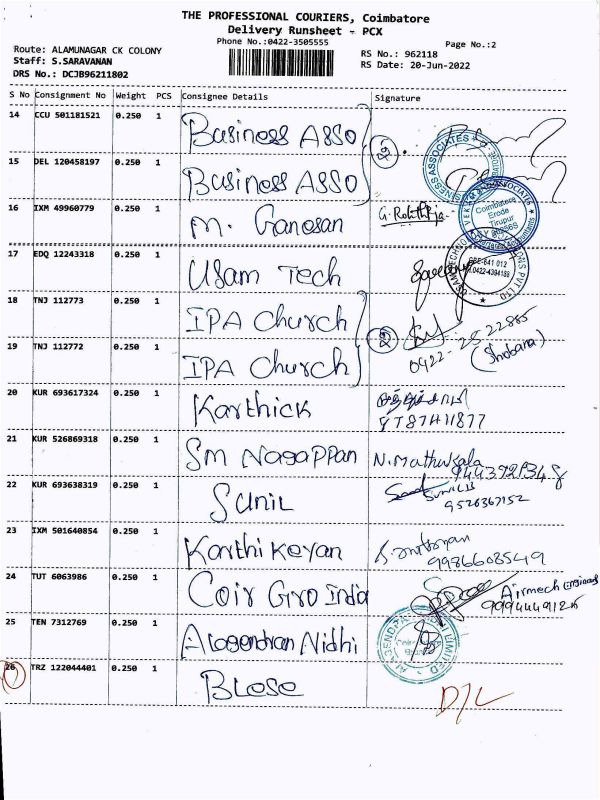 THE PROFESSIONAL COURIERS, Coimbatore
Delivery Runsheet - PCX
Phone No.:0422-3505555
Page No.:2
Route: ALAMUNAGAR CK COLONY
RS No.: 962118
Staff: S.SARAVANAN
RS Date: 20-Jun-2022
DRS No.: DCJB96211802
S No Consignment No Weight PCS Consignee Details Signature
14 CCU 501181521 0.250 1 Business Asso
15 DEL 120458197 0.250 1 Business Asso
16 IXM 49960779 0.250 1 M. Ganesan
17 EDQ 12243318 0.250 1 Usam Tech
18 TNJ 112773 0.250 1 IPA Church
19 TNJ 112772 0.250 1 IPA Church (Shobana)
20 KUR 693617324 0.250 1 Karthick
21 KUR 526869318 0.250 1 SM Nagappan
22 KUR 693638319 0.250 1 Sunil
9526367152
23 IXM 501640854 0.250 1 Karthikeyan
9986608549
24 TUT 6063986 0.250 1 Coir Gro India Airmech
25 TEN 7312769 0.250 1 Alagendran Nidhi
26 TRZ 122044401 0.250 1 Blose
D/L